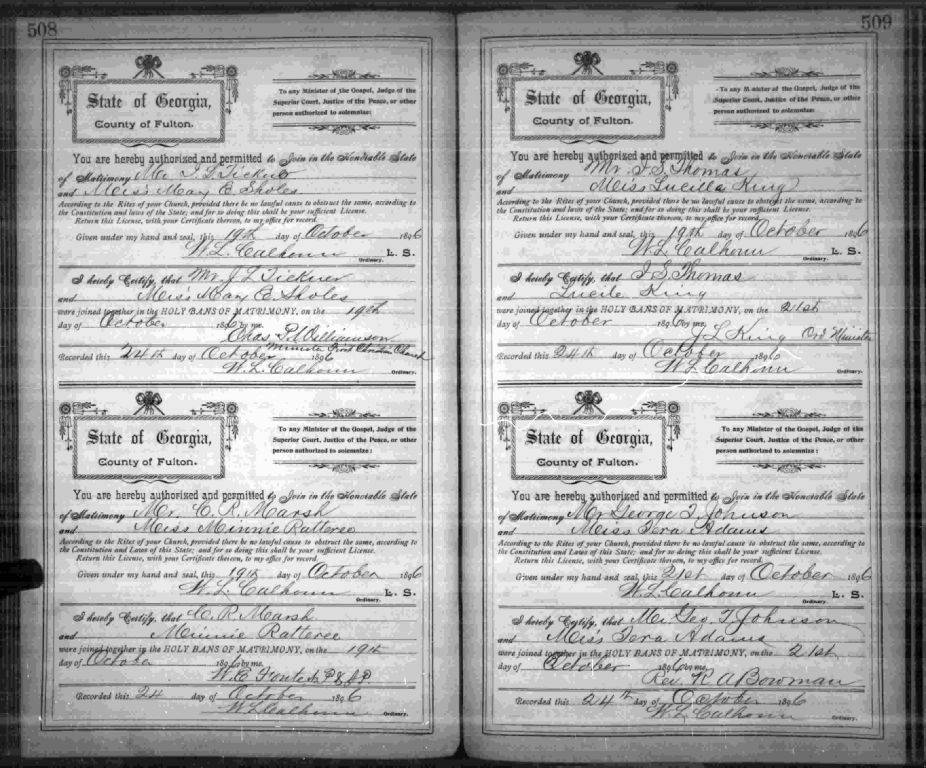 508
State of Georgia,
County of Fulton.
To any Minister of the Gospel, Judge of the
Superior Court, Justice of the Peace, or other
person authorized to solemnize:
You are hereby authorized and permitted to Join in the Honorable State
of Matrimony Mr. J. L. Tickner
and Miss Mary E. Sholes
According to the Rites of your Church, provided there be no lawful cause to obstruct the same, according to
the Constitution and laws of the State; and for so doing this shall be your sufficient License.
Return this License, with your Certificate thereon, to my office for record.
Given under my hand and seal, this 19th day of October 1896
W. L. Calhoun L. S.
Ordinary.
I hereby Certify, that Mr J L Tickner
and Miss Mary E. Sholes
were joined together in the HOLY BANS OF MATRIMONY, on the 19th
day of October 1896 by me.
Chas. P. Williamson
Minister First Christian Church
Recorded this 24th day of October 1896
W. L. Calhoun Ordinary.
State of Georgia,
County of Fulton.
To any Minister of the Gospel, Judge of the
Superior Court, Justice of the Peace, or other
person authorized to solemnize:
You are hereby authorized and permitted to Join in the Honorable State
of Matrimony Mr. C. R. Marsh
and Miss Minnie Ratteree
According to the Rites of your Church, provided there be no lawful cause to obstruct the same, according to
the Constitution and Laws of this State; and for so doing this shall be your sufficient License.
Return this License, with your Certificate thereon, to my office for record.
Given under my hand and seal, this 19th day of October 1896
W. L. Calhoun L. S.
Ordinary.
I hereby Certify, that C. R. Marsh
and Minnie Ratteree
were joined together in the HOLY BANS OF MATRIMONY, on the 19th
day of October 1896 by me.
W. C.
Recorded this 24 day of October 1896
W L Calhoun Ordinary.
509
State of Georgia,
County of Fulton.
To any Minister of the Gospel, Judge of the
Superior Court, Justice of the Peace, or other
person authorized to solemnize:
You are hereby authorized and permitted to Join in the Honorable State
of Matrimony Mr. J. S. Thomas
and Miss Lucilla King
According to the Rites of your Church, provided there be no lawful cause to obstruct the same, according to
the Constitution and laws of the State; and for so doing this shall be your sufficient License.
Return this License, with your Certificate thereon, to my office for record.
Given under my hand and seal, this 19th day of October 1896
W. L. Calhoun L. S.
Ordinary.
I hereby Certify, that J. S. Thomas
and Lucile King
were joined together in the HOLY BANS OF MATRIMONY, on the 21st
day of October 1896 by me.
J L King Ord Minister
Recorded this 24th day of October 1896
W L Calhoun Ordinary.
State of Georgia,
County of Fulton.
To any Minister of the Gospel, Judge of the
Superior Court, Justice of the Peace, or other
person authorized to solemnize:
You are hereby authorized and permitted to Join in the Honorable State
of Matrimony Mr George T. Johnson
and Miss Tera Adams
According to the Rites of your Church, provided there be no lawful cause to obstruct the same, according to
the Constitution and laws of this State; and for so doing this shall be your sufficient License.
Return this License, with your Certificate thereon, to my office for record.
Given under my hand and seal, this 21st day of October 1896
W. L. Calhoun L. S.
Ordinary.
I hereby Certify, that Mr. Geo. T Johnson
and Miss Tera Adams
were joined together in the HOLY BANS OF MATRIMONY, on the 21st
day of October 1896 by me.
Rev. R A Bowman
Recorded this 24th day of October 1896
W L Calhoun Ordinary.